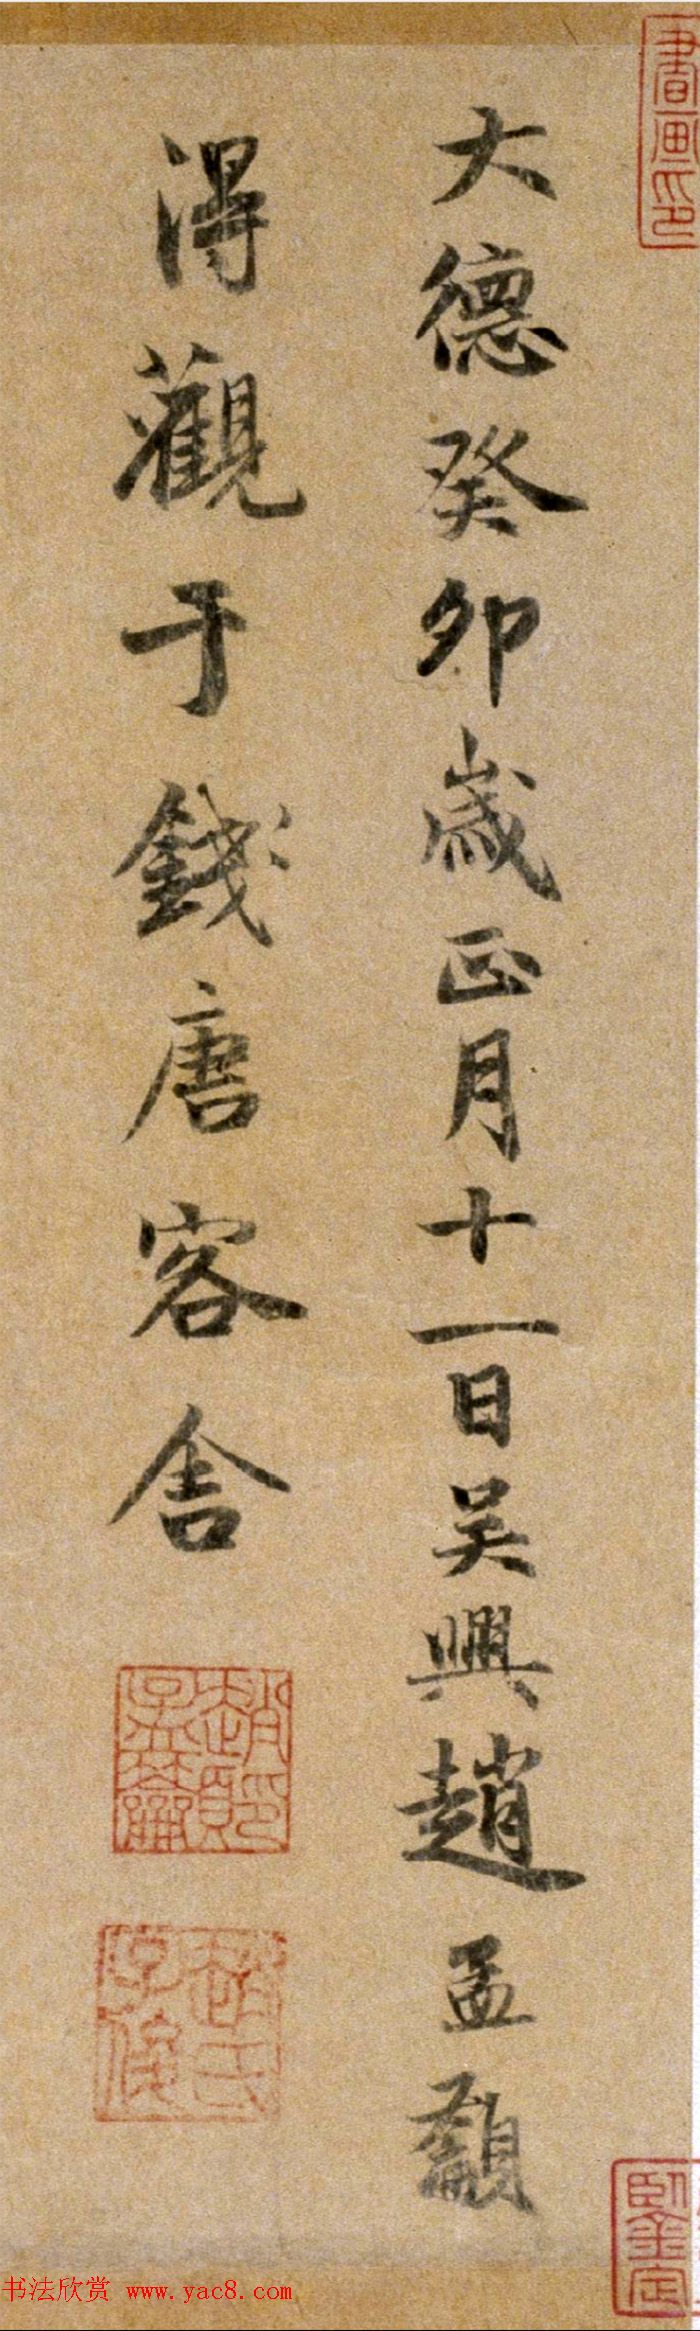 書画印
大德癸卯歲正月十一日吳興趙孟籲
得觀于錢唐客舍
趙氏子俊
书法欣赏 www.yac8.com